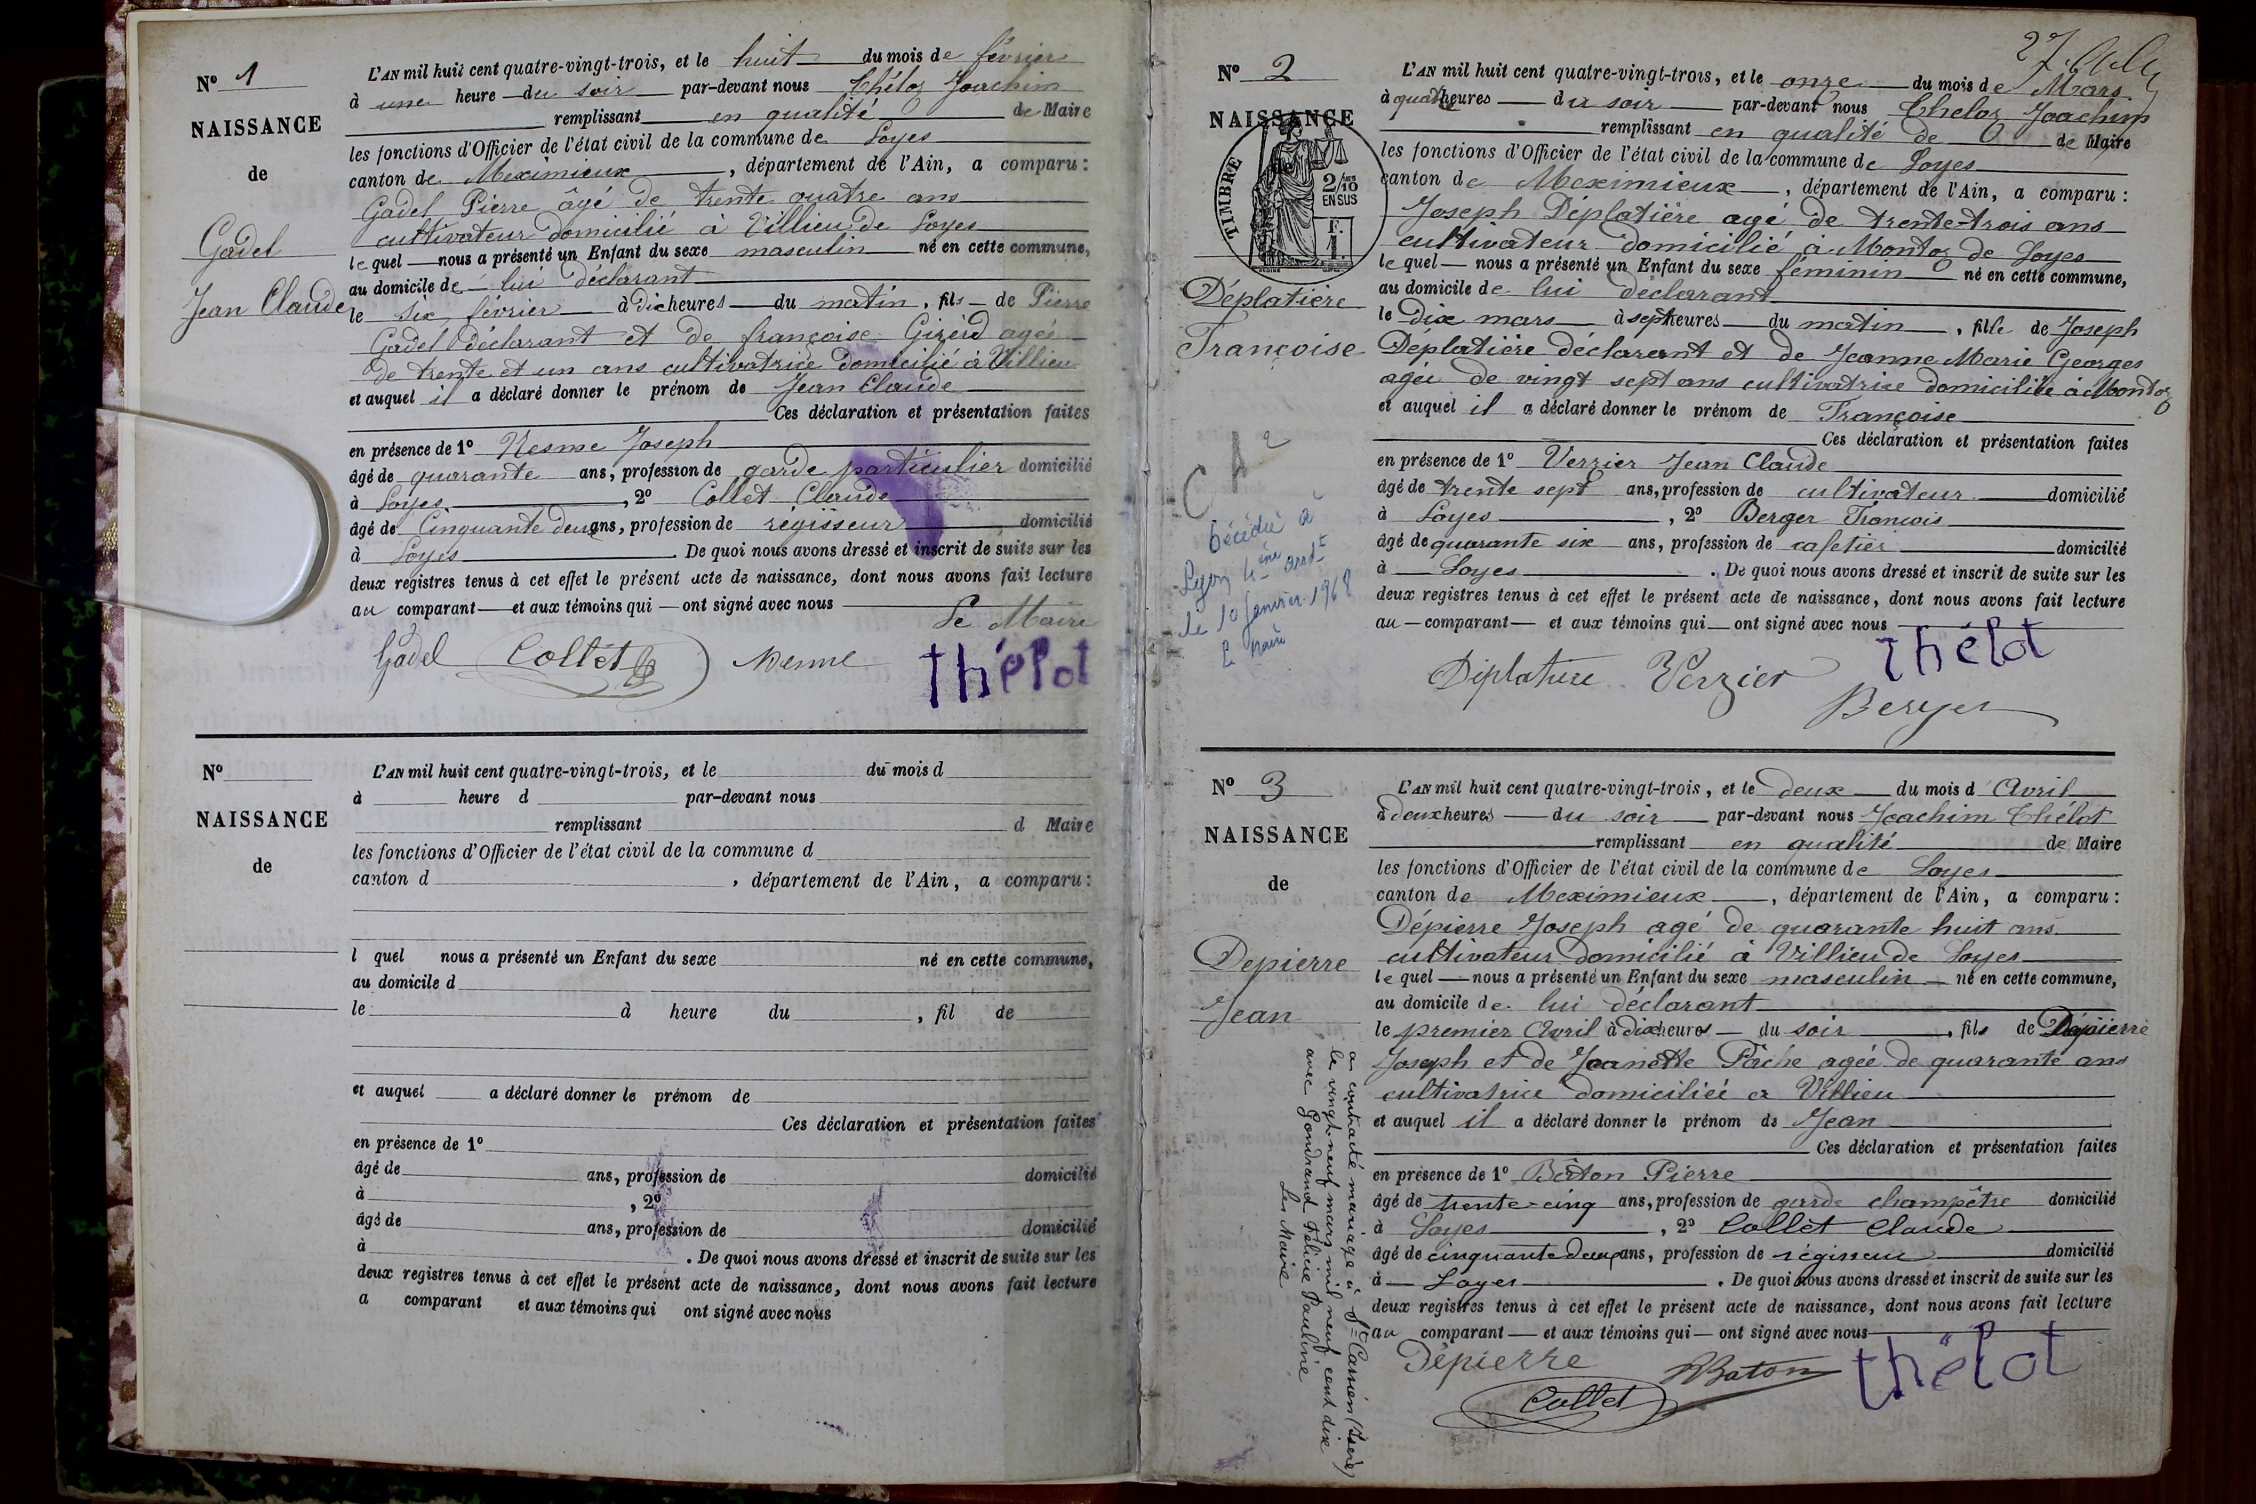 N° 1
NAISSANCE
de
Gadel
Jean Claude
L'AN mil huit cent quatre-vingt-trois, et le huit du mois de février
à une heure du soir par-devant nous Théloz Joachim
remplissant en qualité de Maire
les fonctions d'Officier de l'état civil de la commune de Loyes
canton de Meximieux, département de l'Ain, a comparu :
Gadel Pierre âgé de trente quatre ans
cultivateur domicilié à Villieu de Loyes
lequel nous a présenté un Enfant du sexe masculin né en cette commune,
au domicile de lui déclarant
le six février à dix heures du matin, fils de Pierre
Gadel déclarant et de françoise Girerd agée
de trente et un ans cultivatrice domicilié à Villieu
et auquel il a déclaré donner le prénom de Jean Claude
Ces déclaration et présentation faites
en présence de 1° Nesme Joseph
âgé de quarante ans, profession de garde particulier domicilié
à Loyes, 2° Collet Claude
âgé de Cinquante deux ans, profession de régisseur domicilié
à Loyes. De quoi nous avons dressé et inscrit de suite sur les
deux registres tenus à cet effet le présent acte de naissance, dont nous avons fait lecture
au comparant et aux témoins qui ont signé avec nous
Le Maire
Gadel Collet Nesme thélot
N°
NAISSANCE
de
L'AN mil huit cent quatre-vingt-trois, et le du mois d
à heure d par-devant nous
remplissant d Maire
les fonctions d'Officier de l'état civil de la commune d
canton d , département de l'Ain, a comparu :
l quel nous a présenté un Enfant du sexe né en cette commune,
au domicile d
le à heure du , fil de
et auquel a déclaré donner le prénom de
Ces déclaration et présentation faites
en présence de 1°
âgé de ans, profession de domicilié
à , 2°
âgé de ans, profession de domicilié
à . De quoi nous avons dressé et inscrit de suite sur les
deux registres tenus à cet effet le présent acte de naissance, dont nous avons fait lecture
a comparant et aux témoins qui ont signé avec nous
N° 2
NAISSANCE
de
TIMBRE
2/10
EN SUS
F.
1.
Déplatière
Françoise
Décédée à
Lyon 4ème arrdt
le 10 Janvier 1968
Le Maire
L'AN mil huit cent quatre-vingt-trois, et le onze du mois de Mars
à quatre heures du soir par-devant nous Theloz Joachim
remplissant en qualité de de Maire
les fonctions d'Officier de l'état civil de la commune de Loyes
canton de Meximieux, département de l'Ain, a comparu :
Joseph Déplatière agé de trente-trois ans
cultivateur domicilié à Montoz de Loyes
lequel nous a présenté un Enfant du sexe féminin né en cette commune,
au domicile de lui declarant
le dix mars à sept heures du matin, fille de Joseph
Deplatière déclarant et de Jeanne Marie Georges
agée de vingt sept ans cultivatrice domiciliée à Montoz
et auquel il a déclaré donner le prénom de Françoise
Ces déclaration et présentation faites
en présence de 1° Verzier Jean Claude
âgé de trente sept ans, profession de cultivateur domicilié
à Loyes, 2° Berger Francois
âgé de quarante six ans, profession de cafetier domicilié
à Loyes. De quoi nous avons dressé et inscrit de suite sur les
deux registres tenus à cet effet le présent acte de naissance, dont nous avons fait lecture
au comparant et aux témoins qui ont signé avec nous
Déplatière Verzier thélot
Berger
N° 3
NAISSANCE
de
Depierre
Jean
a contracté mariage à St Cassien (Isère)
le vingt-neuf mars mil neuf cent dix
avec Gondrand Félicie Pauline
Le Maire
L'AN mil huit cent quatre-vingt-trois, et le deux du mois d'Avril
à deux heures du soir par-devant nous Joachim Thélot
remplissant en qualité de Maire
les fonctions d'Officier de l'état civil de la commune de Loyes
canton de Meximieux, département de l'Ain, a comparu :
Dépierre Joseph agé de quarante huit ans
cultivateur domicilié à Villieu de Loyes
lequel nous a présenté un Enfant du sexe masculin né en cette commune,
au domicile de lui déclarant
le premier Avril à dix heures du soir, fils de Dépierre
Joseph et de Jeanette Pache agée de quarante ans
cultivatrice domiciliée à Villieu
et auquel il a déclaré donner le prénom de Jean
Ces déclaration et présentation faites
en présence de 1° Bâton Pierre
âgé de trente-cinq ans, profession de garde champêtre domicilié
à Loyes, 2° Collet Claude
âgé de cinquante deux ans, profession de régisseur domicilié
à Loyes. De quoi nous avons dressé et inscrit de suite sur les
deux registres tenus à cet effet le présent acte de naissance, dont nous avons fait lecture
au comparant et aux témoins qui ont signé avec nous
Dépierre Baton thélot
Collet